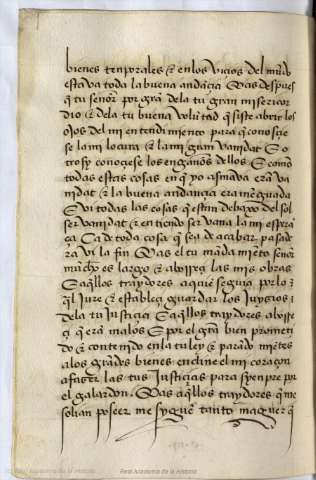 bienes tenporales & en los viçios del mũdo
estava toda la buena andãça Mas despues
q̃ tu señor por grã de la tu gran misericor
dia & de la tu buena volũtad quesiste abrir los
ojos del mi entendimiento para q̃ conosçie
se la mi locura & la mi gran vanidat & o
trosy conoçese los engaños dellos & como
todas estas cosas en q̃ yo asmava erã va
nidat & la buena andança era mẽguada
& vi todas las cosas que están debaxo del sol
ser vanidat & entiendo ser vana la mi esperã
ça Ca de toda cosa que sea de acabar pasade
ra vi la fin Mas el tu mãdamiẽto señor
mucho es largo & aborreçi las mis obras
& aq̃llos traydores a que seguia por lo
qual jure & estableçi guardar los juyçios
de la tu justiçia & aq̃llos traydores aborre
çi q̃ erã malos & por el grã bien prometi
do & contenido en la tu ley & parãdo miẽtes
a los grãdes bienes encline el mi coraçon
a fazer las tus justiçias para syenpre por
el galardon Mas aq̃llos traydores q̃ me
solian poseer me syguẽ tanto maguer q̃
Real Academia de la Historia